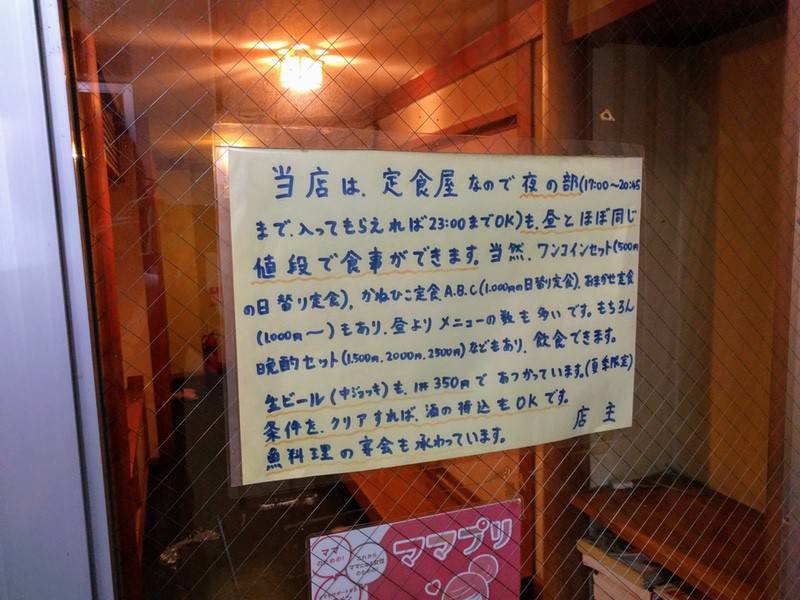 当店は、定食屋なので夜の部(17:00〜20:45
まで、入ってもらえれば23:00までOK)も、昼とほぼ同じ
値段で食事ができます。当然、ワンコインセット(500円
の日替り定食)、かねひこ定食A.B.C(1,000円の日替り定食)、おまかせ定食
(1,000円〜)もあり、昼よりメニューの数も多いです。もちろん
晩酌セット(1,500円、2,000円、2,500円)などもあり、飲食できます。
生ビール(中ジョッキ)も、1杯350円であつかっています。(夏季限定)
条件を、クリアすれば、酒の持込もOKです。
魚料理の宴会も承わっています。
店主
ママプリ
ママ
のための!
これから
ママになる女性
のための!